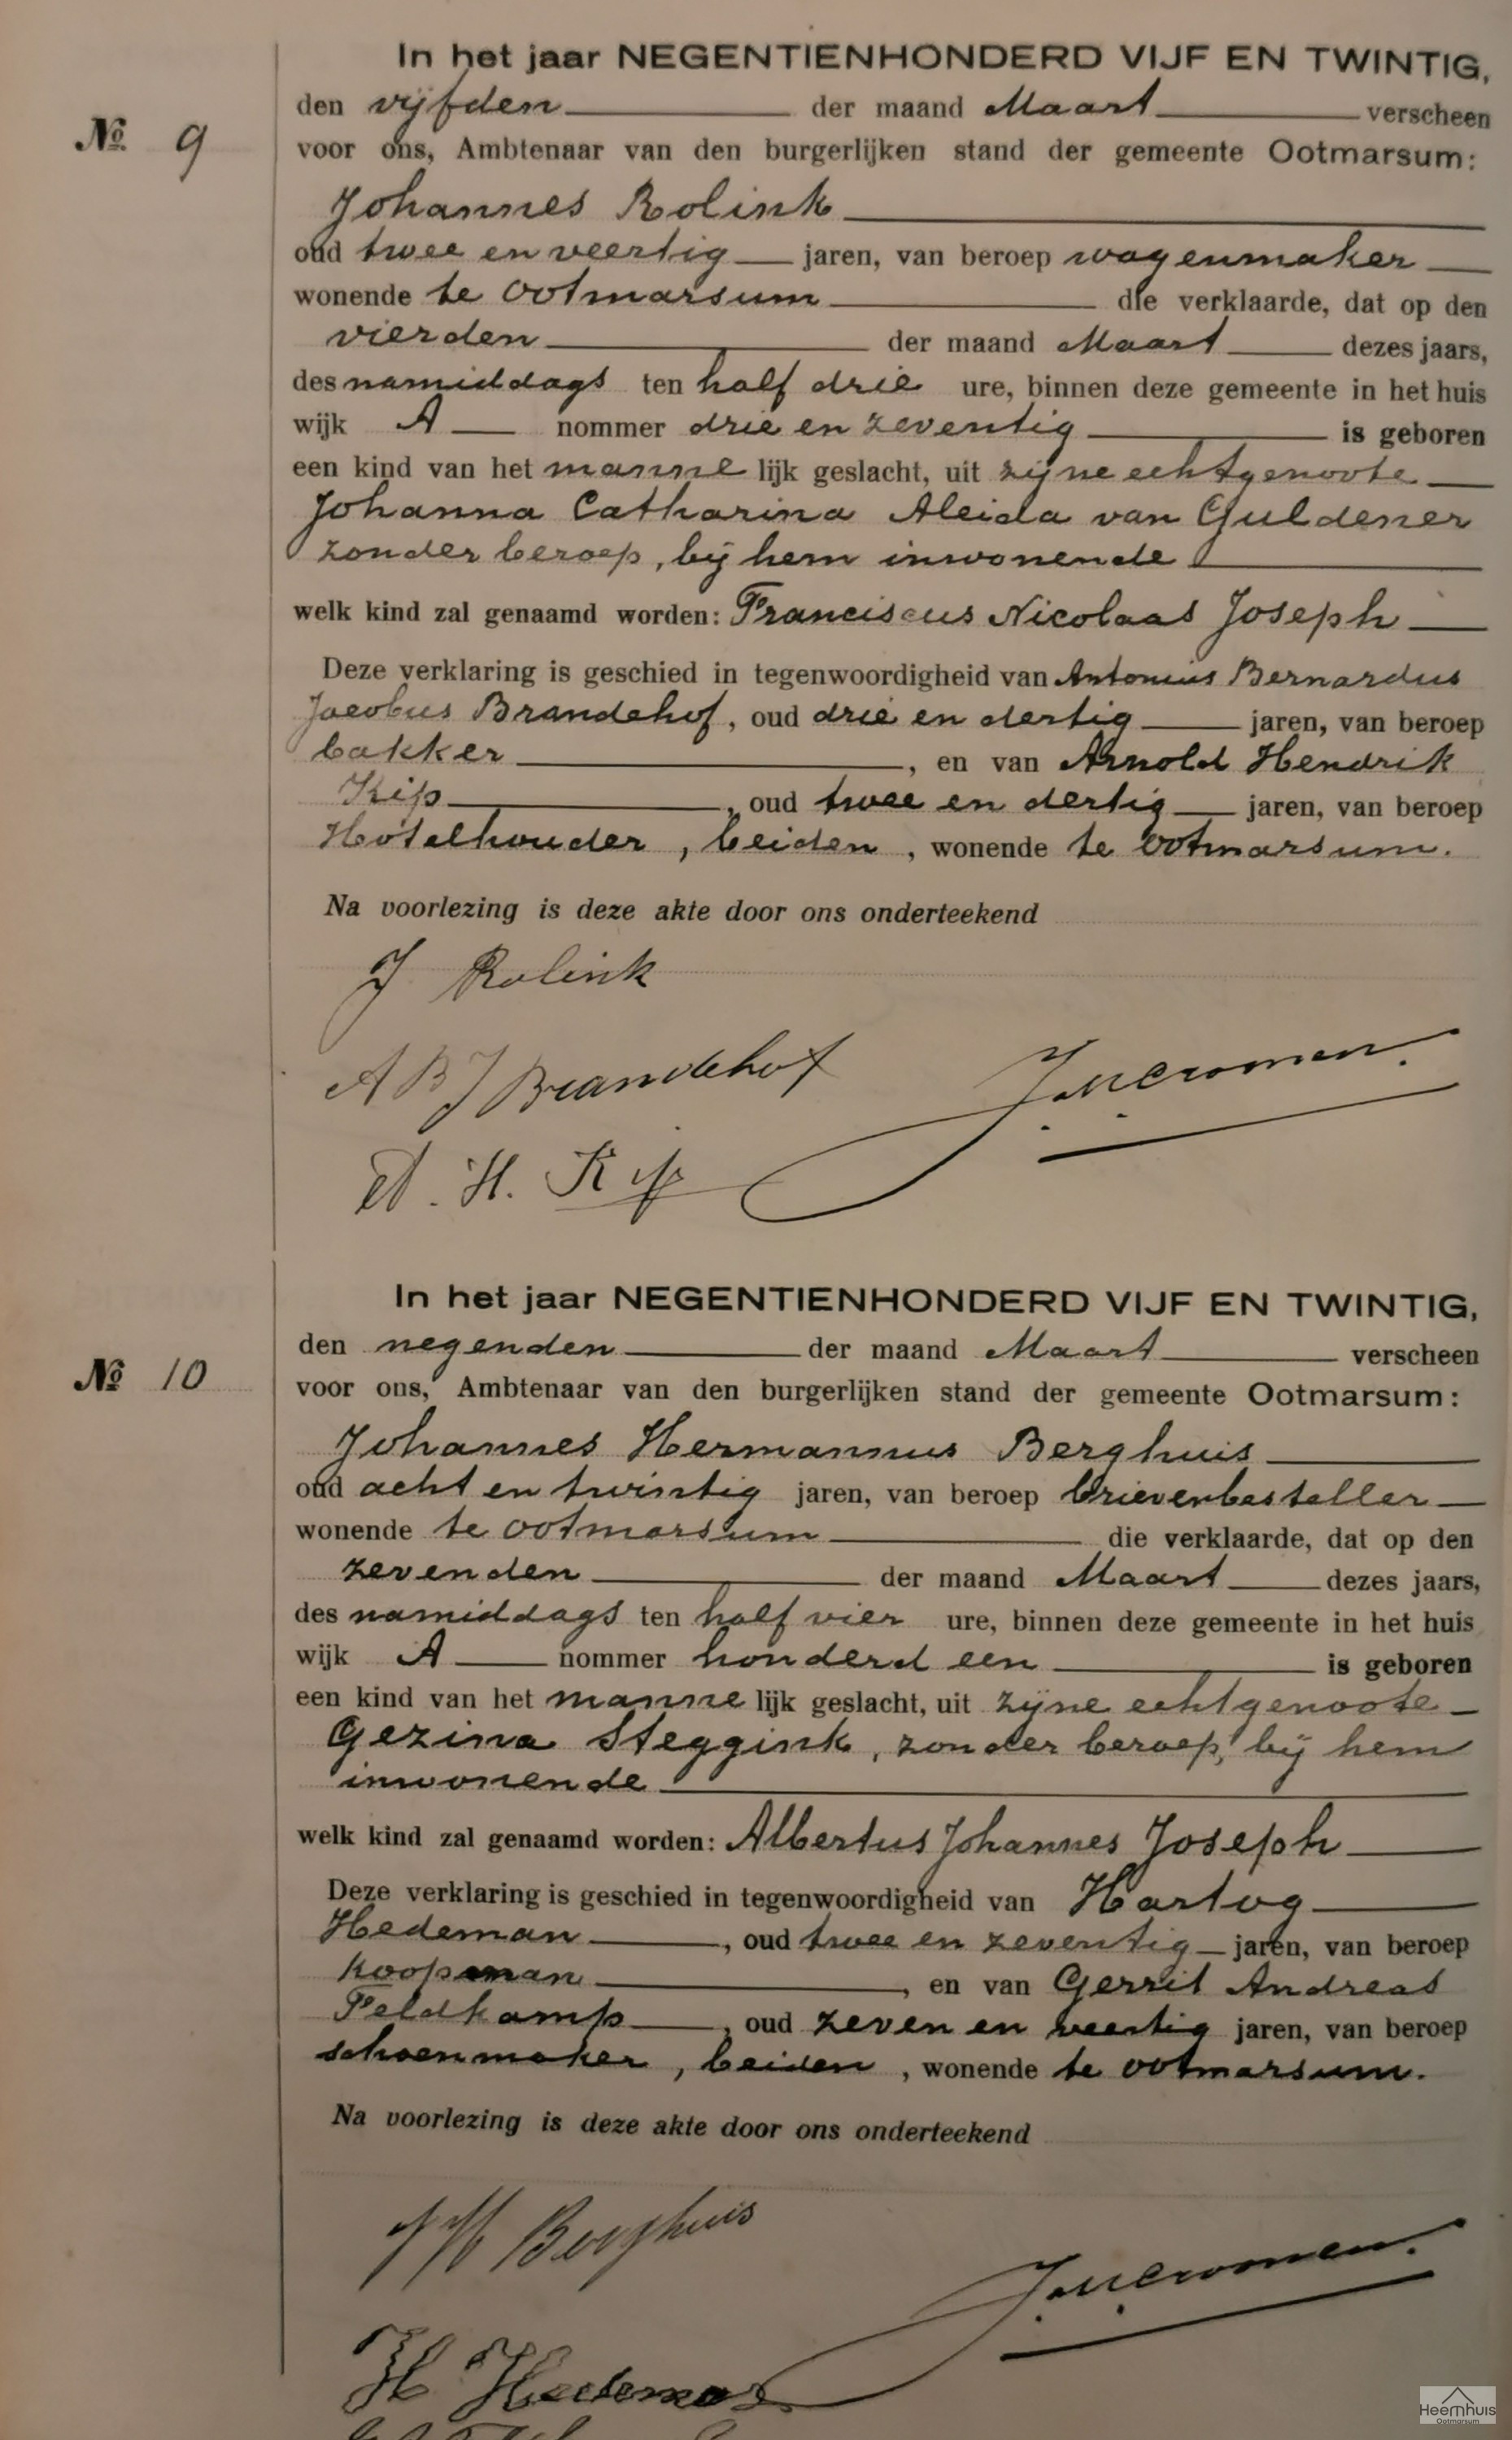 In het jaar NEGENTIENHONDERD VIJF EN TWINTIG,
den vijfden der maand Maart verscheen
No. 9
voor ons, Ambtenaar van den burgerlijken stand der gemeente Ootmarsum:
Johannes Rolink
oud twee en veertig jaren, van beroep wagenmaker
wonende te Ootmarsum die verklaarde, dat op den
vierden der maand Maart dezes jaars,
des namiddags ten half drie ure, binnen deze gemeente in het huis
wijk A nommer drie en zeventig is geboren
een kind van het manne lijk geslacht, uit zijne echtgenoote
Johanna Catharina Aleida van Guldener
zonder beroep, bij hem inwonende
welk kind zal genaamd worden: Franciscus Nicolaas Joseph
Deze verklaring is geschied in tegenwoordigheid van Antonius Bernardus
Jacobus Brandehof, oud drie en dertig jaren, van beroep
bakker, en van Arnold Hendrik
Kip, oud twee en dertig jaren, van beroep
Hotelhouder, beiden, wonende te Ootmarsum.
Na voorlezing is deze akte door ons onderteekend
J Rolink
A B J Brandehof
A. H. Kip
In het jaar NEGENTIENHONDERD VIJF EN TWINTIG,
den negenden der maand Maart verscheen
No 10
voor ons, Ambtenaar van den burgerlijken stand der gemeente Ootmarsum:
Johannes Hermannus Berghuis
oud acht en twintig jaren, van beroep brievenbesteller
wonende te Ootmarsum die verklaarde, dat op den
zevenden der maand Maart dezes jaars,
des namiddags ten half vier ure, binnen deze gemeente in het huis
wijk A nommer honderd een is geboren
een kind van het manne lijk geslacht, uit zijne echtgenoote
Gezina Steggink, zonder beroep, bij hem
inwonende
welk kind zal genaamd worden: Albertus Johannes Joseph
Deze verklaring is geschied in tegenwoordigheid van Hartog
Hedeman, oud twee en zeventig jaren, van beroep
koopman, en van Gerrit Andreas
Feldkamp, oud zeven en veertig jaren, van beroep
schoenmaker, beiden, wonende te Ootmarsum.
Na voorlezing is deze akte door ons onderteekend
J H Berghuis
H Hedeman
Heemhuis
Ootmarsum